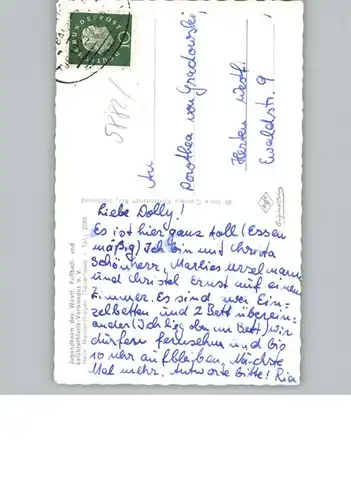 Liebe Dolly!
Es ist hier ganz toll (Essen
mäßig) Ich bin mit Christa
Schönherr, Marlies Urselmann
und Christel Ernst auf einem
Zimmer. Es sind zwei Ein=
zelbetten und 2 Bett überein=
ander (Ich lieg oben im Bett) wir
dürfen fernsehen und bis
10 Uhr aufbleiben. Nächste
Mal mehr. Antworte bitte! Ria
An
Dorothea von Gradowski
Herten Westf.
Ewaldstr. 9
5882/
Jugendheim des Westf. Fußball- und
Leichtathletik-Verbandes e. V.
(Sauerland) Tel. 2080
DEUTSCHE BUNDESPOST
10